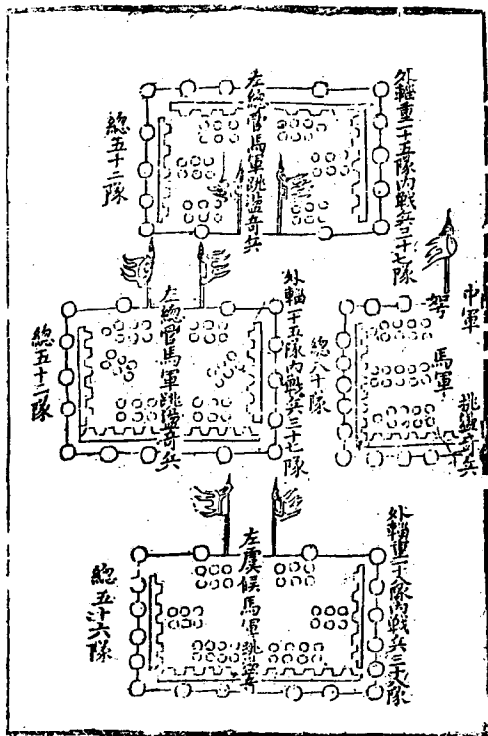 外輜重二十五隊內戰兵三十七隊
左總管馬軍跳盪奇兵
總五十二隊
中軍
弩
馬軍
跳盪奇兵
總八十隊
外輜二十五隊內戰兵三十七隊
左總管馬軍跳盪奇兵
總五十二隊
外輜重二十八隊內戰兵三十八隊
左虞候馬軍跳盪奇兵
總五十六隊